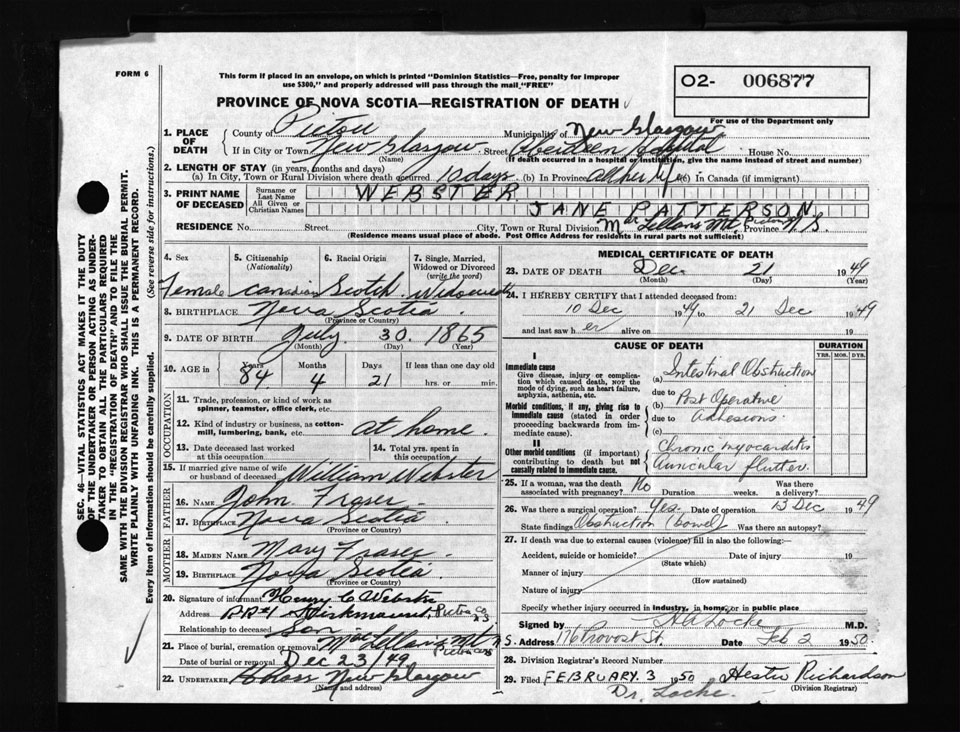 FORM 6
This form if placed in an envelope, on which is printed "Dominion Statistics—Free, penalty for improper
use $300," and properly addressed will pass through the mail "FREE"
O2- 006877
For use of the Department only
PROVINCE OF NOVA SCOTIA—REGISTRATION OF DEATH
1. PLACE OF DEATH
County of Pictou Municipality of New Glasgow
If in City or Town New Glasgow Street Aberdeen Hospital House No.
(Name) (If death occurred in a hospital or institution, give the name instead of street and number)
2. LENGTH OF STAY (in years, months and days)
(a) In City, Town or Rural Division where death occurred 10 days (b) In Province all her life (c) In Canada (if immigrant)
3. PRINT NAME OF DECEASED
Surname or Last Name WEBSTER
All Given or Christian Names JANE PATTERSON
RESIDENCE No. Street City, Town or Rural Division MacLellans Mt. Pictou Province N.S.
(Residence means usual place of abode. Post Office Address for residents in rural parts not sufficient)
4. Sex Female
5. Citizenship (Nationality) Canadian
6. Racial Origin Scotch
7. Single, Married, Widowed or Divorced (write the word) Widowed
8. BIRTHPLACE Nova Scotia
(Province or Country)
9. DATE OF BIRTH July 30. 1865
(Month) (Day) (Year)
10. AGE in Years 84 Months 4 Days 21 If less than one day old hrs. or min.
OCCUPATION
11. Trade, profession, or kind of work as spinner, teamster, office clerk, etc.
12. Kind of industry or business, as cotton-mill, lumbering, bank, etc. at home.
13. Date deceased last worked at this occupation
14. Total yrs. spent in this occupation
15. If married give name of wife or husband of deceased William Webster
FATHER
16. NAME John Fraser
17. BIRTHPLACE Nova Scotia
(Province or Country)
MOTHER
18. MAIDEN NAME Mary Fraser
19. BIRTHPLACE Nova Scotia
(Province or Country)
20. Signature of informant Henry C Webster
Address RR#1 Pictou Co NS
Relationship to deceased Son
21. Place of burial, cremation or removal MacLellans Mt. NS Pictou Co
Date of burial or removal Dec 23/49
22. UNDERTAKER New Glasgow
(Name and address)
MEDICAL CERTIFICATE OF DEATH
23. DATE OF DEATH Dec. 21 1949
(Month) (Day) (Year)
24. I HEREBY CERTIFY that I attended deceased from:
10 Dec 1949 to 21 Dec 1949
and last saw her alive on 19
CAUSE OF DEATH
DURATION
YRS. MOS. DYS.
I
Immediate cause
Give disease, injury or complication which caused death, NOT the mode of dying, such as heart failure, asphyxia, asthenia, etc.
(a) Intestinal Obstruction
due to
Morbid conditions, if any, giving rise to immediate cause (stated in order proceeding backwards from immediate cause).
(b) Post Operative
due to Adhesions.
(c)
II
Other morbid conditions (if important) contributing to death but not causally related to immediate cause.
Chronic myocarditis
Auricular flutter.
25. If a woman, was the death associated with pregnancy? No Duration weeks. Was there a delivery?
26. Was there a surgical operation? Yes. Date of operation 13 Dec 1949
State findings Obstruction (bowel) Was there an autopsy?
27. If death was due to external causes (violence) fill in also the following:—
Accident, suicide or homicide? Date of injury 19
(State which)
Manner of injury
(How sustained)
Nature of injury
Specify whether injury occurred in industry, in home, or in public place
Signed by HA Locke M.D.
Address 176 Provost St. Date Feb 2 1950.
28. Division Registrar's Record Number
29. Filed FEBRUARY 3 1950 Hester Richardson
(Division Registrar)
Dr. Locke.
SEC. 46—VITAL STATISTICS ACT MAKES IT THE DUTY
OF THE UNDERTAKER OR PERSON ACTING AS UNDER-
TAKER TO OBTAIN ALL THE PARTICULARS REQUIRED
IN THE "REGISTRATION OF DEATH" AND TO FILE THE
SAME WITH THE DIVISION REGISTRAR WHO SHALL ISSUE THE BURIAL PERMIT.
WRITE PLAINLY WITH UNFADING INK. THIS IS A PERMANENT RECORD.
Every item of information should be carefully supplied. (See reverse side for instructions.)